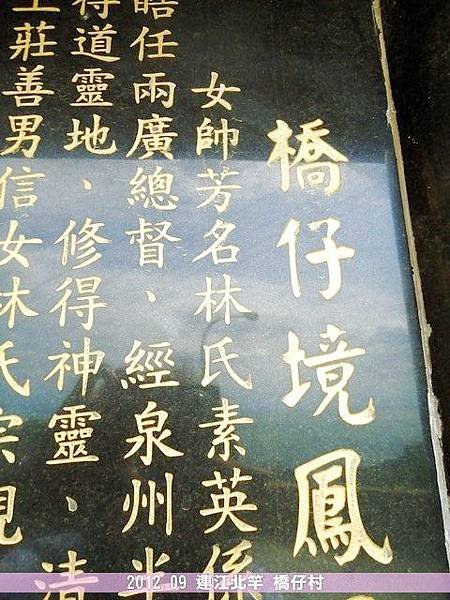 橋仔境鳳
女帥芳名林氏素英係
皓任兩廣總督、經泉州半
得道靈地、修得神靈、清
莊善男信女林氏宗親
2012.09 連江北竿 橋仔村